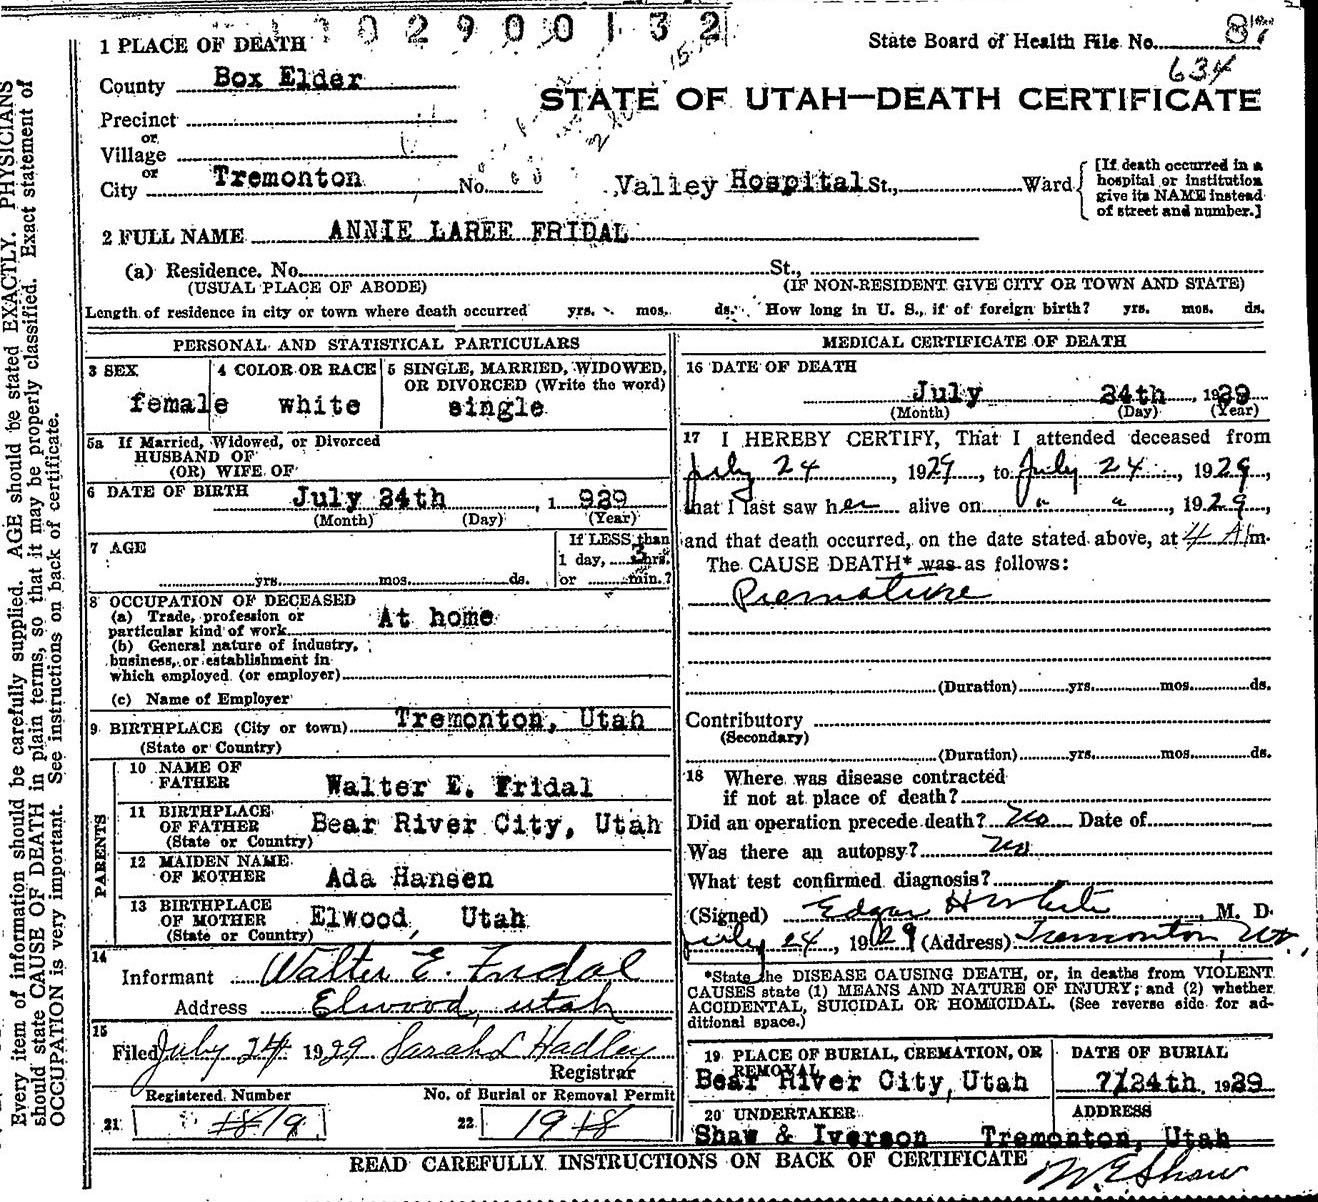 10290 0132
1 PLACE OF DEATH
State Board of Health File No. 87
634
County Box Elder
STATE OF UTAH—DEATH CERTIFICATE
Precinct
or
Village
or
City Tremonton No. Valley Hospital St., Ward
[If death occurred in a
hospital or institution
give its NAME instead
of street and number.]
2 FULL NAME ANNIE LAREE FRIDAL
(a) Residence. No. St.,
(USUAL PLACE OF ABODE) (IF NON-RESIDENT GIVE CITY OR TOWN AND STATE)
Length of residence in city or town where death occurred yrs. mos. ds. How long in U. S., if of foreign birth? yrs. mos. ds.
PERSONAL AND STATISTICAL PARTICULARS
3 SEX 4 COLOR OR RACE 5 SINGLE, MARRIED, WIDOWED,
OR DIVORCED (Write the word)
female white single
5a If Married, Widowed, or Divorced
HUSBAND OF
(OR) WIFE OF
6 DATE OF BIRTH July 24th, 1 929
(Month) (Day) (Year)
7 AGE If LESS than
1 day, 3 hrs.
yrs. mos. ds. or min.?
8 OCCUPATION OF DECEASED
(a) Trade, profession or
particular kind of work At home
(b) General nature of industry,
business, or establishment in
which employed (or employer)
(c) Name of Employer
9 BIRTHPLACE (City or town) Tremonton, Utah
(State or Country)
PARENTS
10 NAME OF
FATHER Walter E. Fridal
11 BIRTHPLACE
OF FATHER Bear River City, Utah
(State or Country)
12 MAIDEN NAME
OF MOTHER Ada Hansen
13 BIRTHPLACE
OF MOTHER Elwood, Utah
(State or Country)
14
Informant Walter E. Fridal
Address Elwood, Utah
15
Filed July 24 1929 Sarah L Hadley
Registrar
Registered Number No. of Burial or Removal Permit
21 19 22 19
MEDICAL CERTIFICATE OF DEATH
16 DATE OF DEATH
July 24th, 1929
(Month) (Day) (Year)
17 I HEREBY CERTIFY, That I attended deceased from
July 24, 1929, to July 24, 1929,
that I last saw her alive on " ", 1929,
and that death occurred, on the date stated above, at 4 A m.
The CAUSE DEATH* was as follows:
Premature
(Duration) yrs. mos. ds.
Contributory
(Secondary)
(Duration) yrs. mos. ds.
18 Where was disease contracted
if not at place of death?
Did an operation precede death? No Date of
Was there an autopsy? No
What test confirmed diagnosis?
(Signed) Edgar H White, M. D.
July 24, 1929 (Address) Tremonton Ut.
*State the DISEASE CAUSING DEATH, or, in deaths from VIOLENT
CAUSES state (1) MEANS AND NATURE OF INJURY; and (2) whether
ACCIDENTAL, SUICIDAL OR HOMICIDAL. (See reverse side for ad-
ditional space.)
19 PLACE OF BURIAL, CREMATION, OR
REMOVAL
Bear River City, Utah
DATE OF BURIAL
7/24th 1929
20 UNDERTAKER ADDRESS
Shaw & Iverson Tremonton, Utah
READ CAREFULLY INSTRUCTIONS ON BACK OF CERTIFICATE
M.E. Shaw
Every item of information should be carefully supplied. AGE should be stated EXACTLY. PHYSICIANS
should state CAUSE OF DEATH in plain terms, so that it may be properly classified. Exact statement of
OCCUPATION is very important. See instructions on back of certificate.